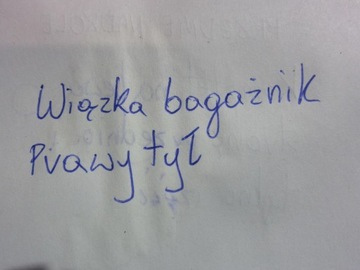 Wiązka bagażnik
Prawy tył